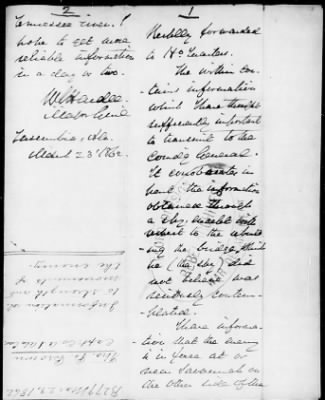 1
Resply forwarded
to Hd Quarters.
The within con-
tains information
which I have thought
sufficiently important
to transmit to the
Comdg General.
It corroborates in
part the information
obtained through
a spy
respect to the
the bridge, which
he (the spy) did
not believe was
seriously contem-
plated.
I have informa-
tion that the enemy
is in force at or
near Savannah on
the other side of the
2
Tennessee river. I
hope to get more
reliable information
in a day or two.
W J Hardee
Major Genl
Tuscumbia, Ala
March 23d 1862
Information as
to strength and
movements of
the enemy.